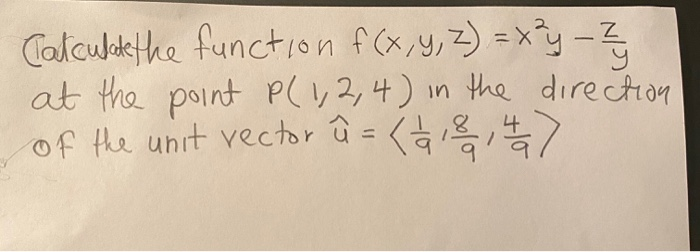 Calculate the function f(x,y,z) = x²y - z/y
at the point P(1,2,4) in the direction
of the unit vector û = ⟨1/9, 8/9, 4/9⟩